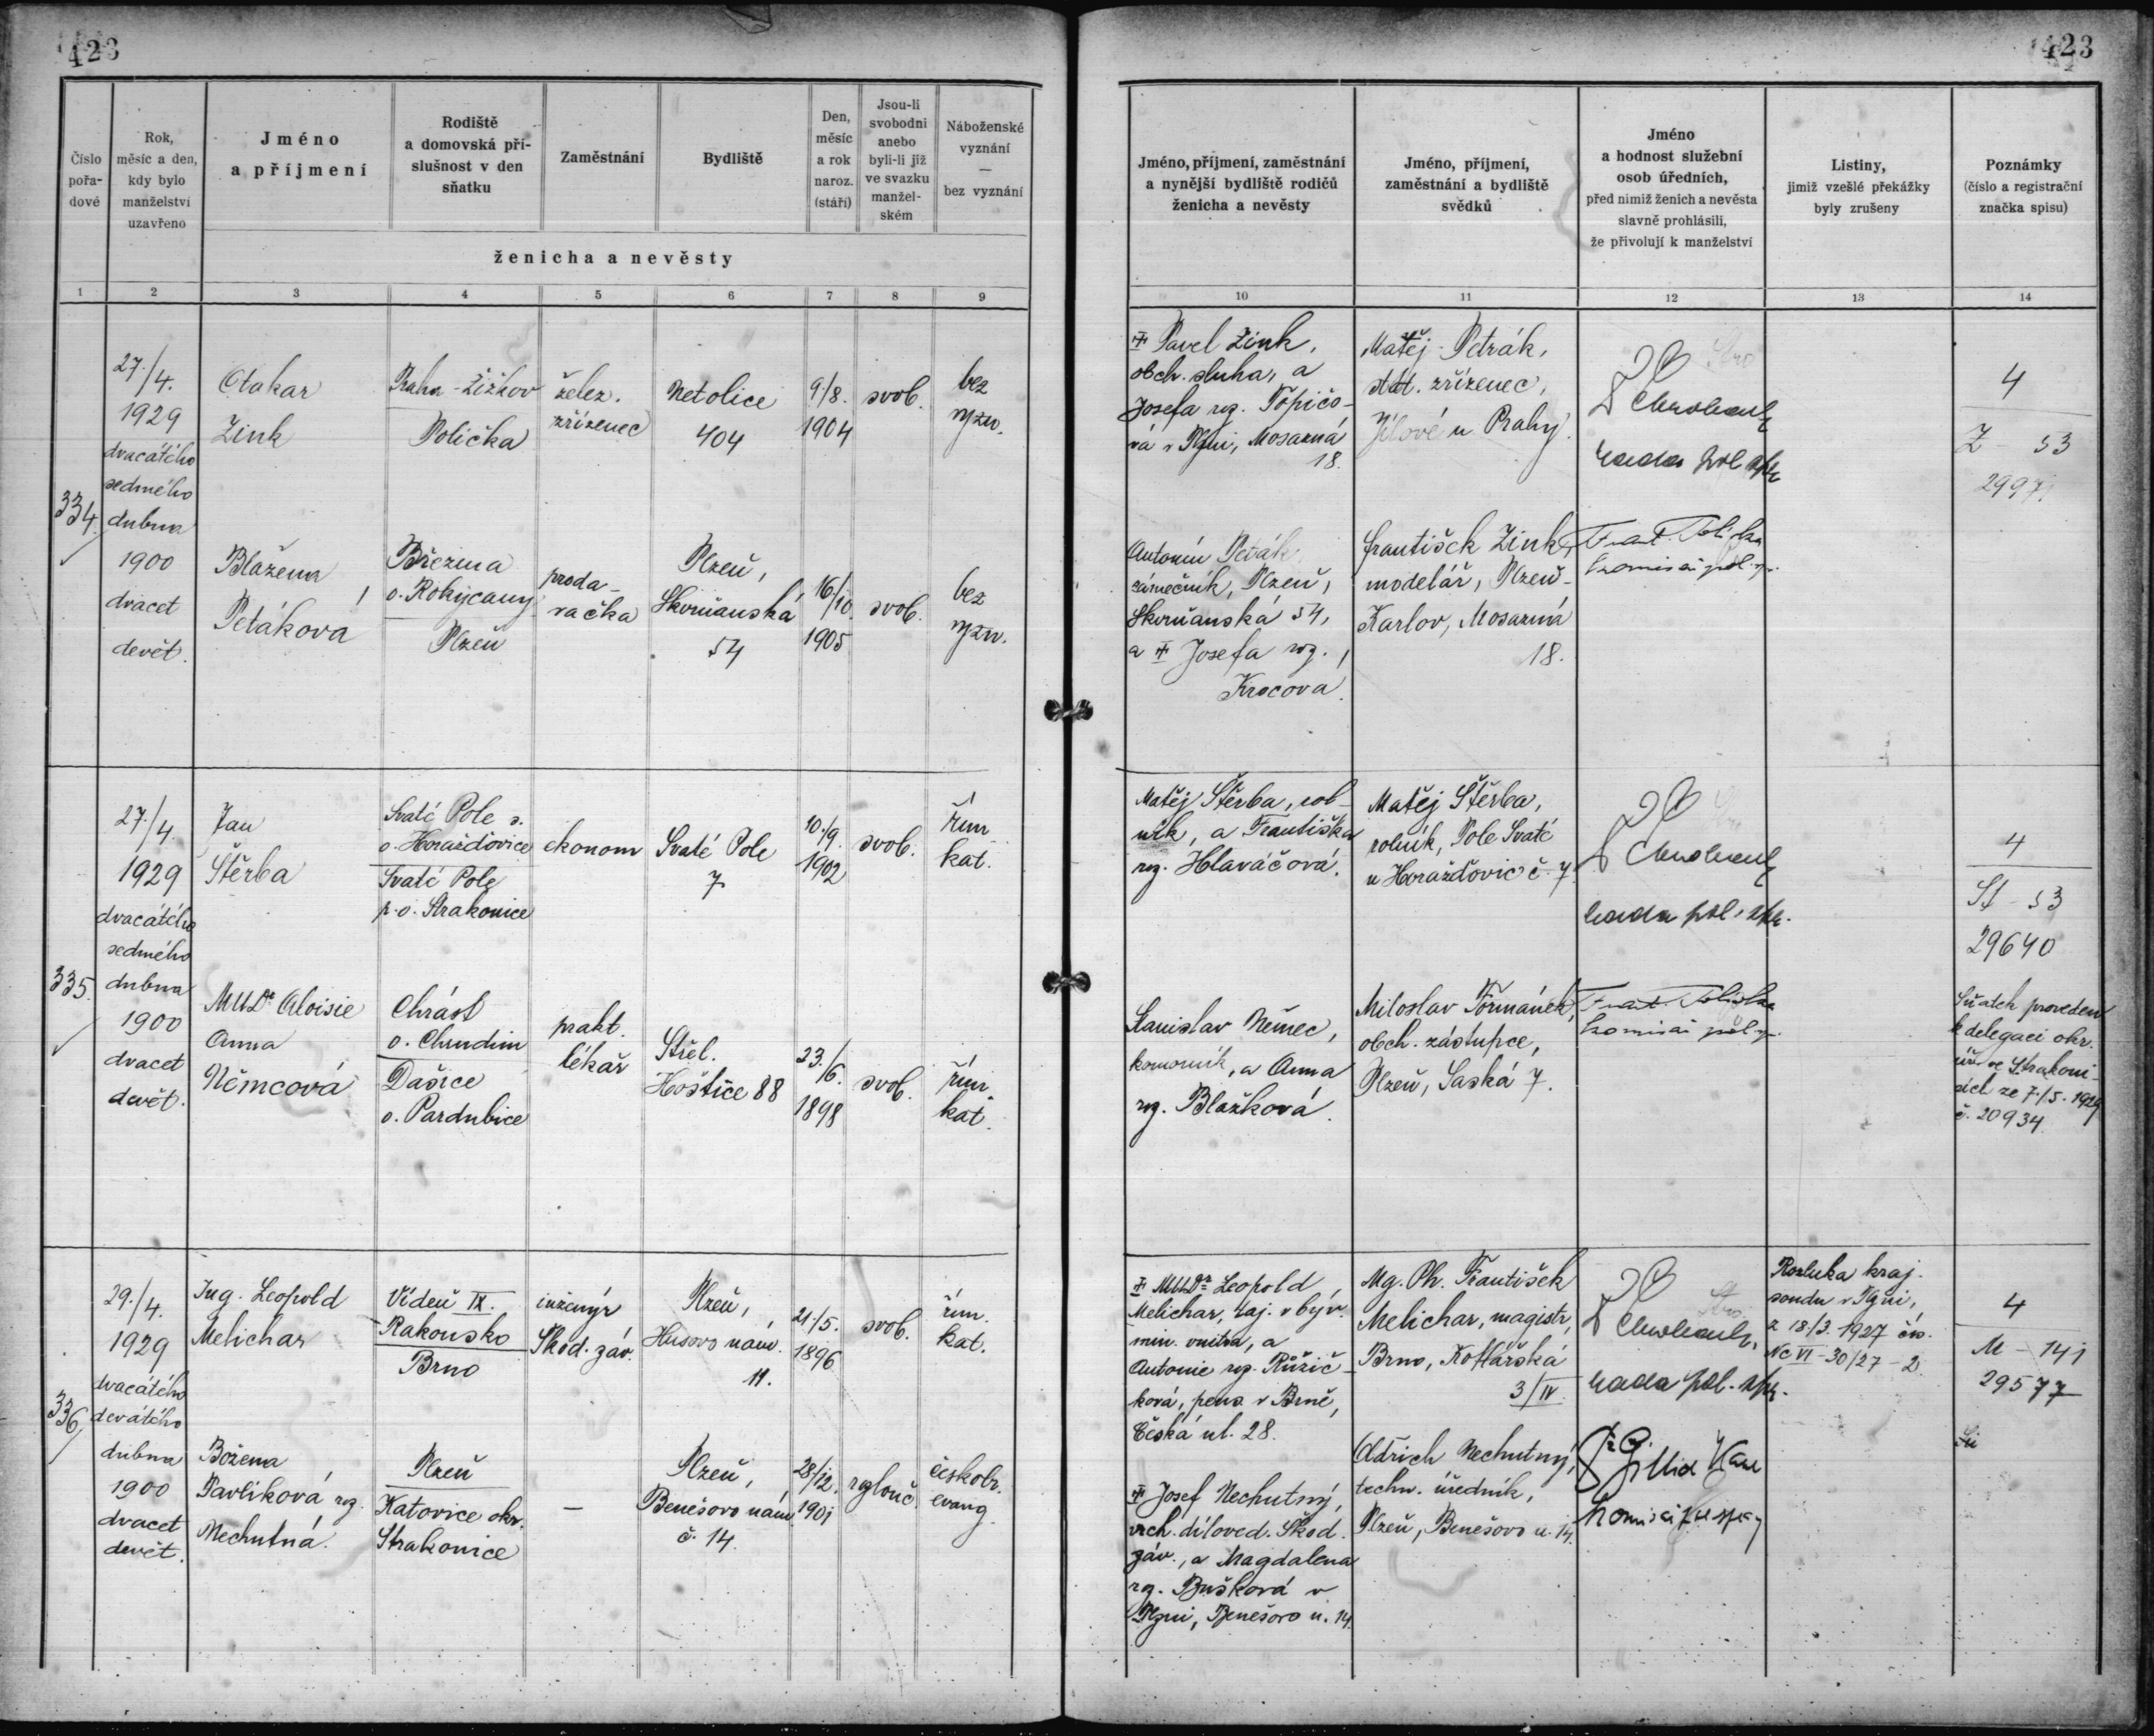 423
423
Číslo pořa-dové
Rok, měsíc a den, kdy bylo manželství uzavřeno
Jméno a příjmení
Rodiště a domovská pří-slušnost v den sňatku
Zaměstnání
Bydliště
Den, měsíc a rok naroz. (stáří)
Jsou-li svobodni anebo byli-li již ve svazku manžel-ském
Náboženské vyznání — bez vyznání
ženicha a nevěsty
Jméno, příjmení, zaměstnání a nynější bydliště rodičů ženicha a nevěsty
Jméno, příjmení, zaměstnání a bydliště svědků
Jméno a hodnost služební osob úředních, před nimiž ženich a nevěsta slavně prohlásili, že přivolují k manželství
Listiny, jimiž vzešlé překážky byly zrušeny
Poznámky (číslo a registrační značka spisu)
1 2 3 4 5 6 7 8 9 10 11 12 13 14
334.
27./4.
1929
dvacátého
sedmého
dubna
1900
dvacet
devět.
Otakar
Zink
Praha-Žižkov
Polička
želez.
zřízenec
Netolice
404
9./8.
1904
svob.
bez
vyzn.
Blažena
Petáková
Březina
o. Rokycany
Plzeň
proda-
vačka
Plzeň,
Skvrňanská
54
16/10.
1905
svob.
bez
vyzn.
Pavel Zink,
obch. sluha, a
Josefa roz. Topičo-
vá v Plzni, Mosazná
18.
Matěj Petrák,
stát. zřízenec,
Jílové u Prahy.
rada pol. spr.
4
Z - 53
Antonín Peták
zámečník, Plzeň,
Skvrňanská 54,
a Josefa roz.
Krocova.
František Zink,
modelář, Plzeň-
Karlov, Mosazná
18.
Frant.
335.
27./4.
1929
dvacátého
sedmého
dubna
1900
dvacet
devět.
Jan
Štěrba
Svaté Pole s.
o. Horažďovice
Svaté Pole
p. o. Strakonice
ekonom
Svaté Pole
7
10./9.
1902
svob.
řím.
kat.
MUDr Aloisie
Anna
Němcová
Chrást
o. Chrudim
Dašice
o. Pardubice
prakt.
lékař
Střel.
Hoštice 88
23./6.
1898
svob.
řím.
kat.
Matěj Štěrba, rol-
ník, a Františka
roz. Hlaváčová.
Matěj Štěrba,
rolník, Pole Svaté
u Horažďovic č. 7.
rada pol. spr.
4
St - 53
29640
Stanislav Němec,
komorník, a Anna
roz. Blažková.
Miloslav Formánek,
obch. zástupce,
Plzeň, Saská 7.
Frant.
Sňatek proveden
k delegaci okr.
úř. ve Strakoni-
cích ze 7./5. 1929
č. 20934.
336.
29./4.
1929
dvacátého
devátého
dubna
1900
dvacet
devět.
Ing. Leopold
Melichar
Vídeň IX.
Rakousko
Brno
inženýr
Škod. záv.
Plzeň,
Husovo nám.
11.
21./5.
1896
svob.
řím.
kat.
Božena
Pavlíková roz.
Nechutná.
Plzeň
Katovice okr.
Strakonice
—
Plzeň,
Benešovo nám.
č. 14.
28/12.
1901
rozlouč.
českobr.
evang.
MUDr Leopold
Melichar, taj. v býv.
min. vnitra, a
Antonie roz. Růžič-
ková, pens. v Brně,
Česká ul. 28.
Mg. Ph. František
Melichar, magistr,
Brno, Kotlářská
3/IV.
rada pol. spr.
Rozluka kraj.
soudu v Plzni,
z 18./3. 1927 čís.
Nc VI-30/27-2.
4
M - 141
29577
Josef Nechutný,
vrch. díloved. Škod.
záv., a Magdalena
roz. Bušková v
Plzni, Benešovo n. 14.
Oldřich Nechutný,
techn. úředník,
Plzeň, Benešovo n. 14.